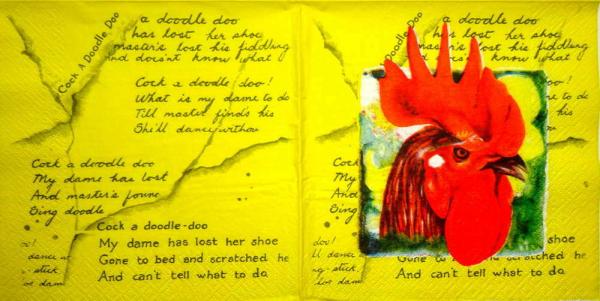 Cock A Doodle Doo
a doodle doo
has lost her shoe
master's lost his fiddling
And doesn't know what
Cock a doodle doo!
What is my dame to do
Till master finds his
She'll dance withou
Cock a doodle doo
My dame has lost
And master's foun
Sing doodle
Cock a doodle-doo
My dame has lost her shoe
Gone to bed and scratched he
And can't tell what to do
doo!
dance
stick
for dam
Doodle Doo
a doodle doo
has lost her shoe
master's lost his fiddling
doesn't know what
doo!
to do
his
Cock
My
And
Sing
shoe
Gone to bed and scratched he
And can't tell what to do
doo!
ll dance
stick
for dam